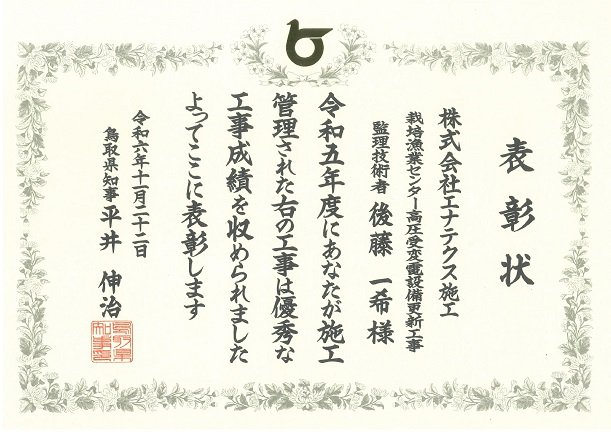 表彰状
株式会社エナテクス施工
栽培漁業センター高圧受変電設備更新工事
監理技術者 後藤 一希 様
令和五年度にあなたが施工
管理された右の工事は優秀な
工事成績を収められました
よってここに表彰します
令和六年十一月二十二日
鳥取県知事 平井 伸治